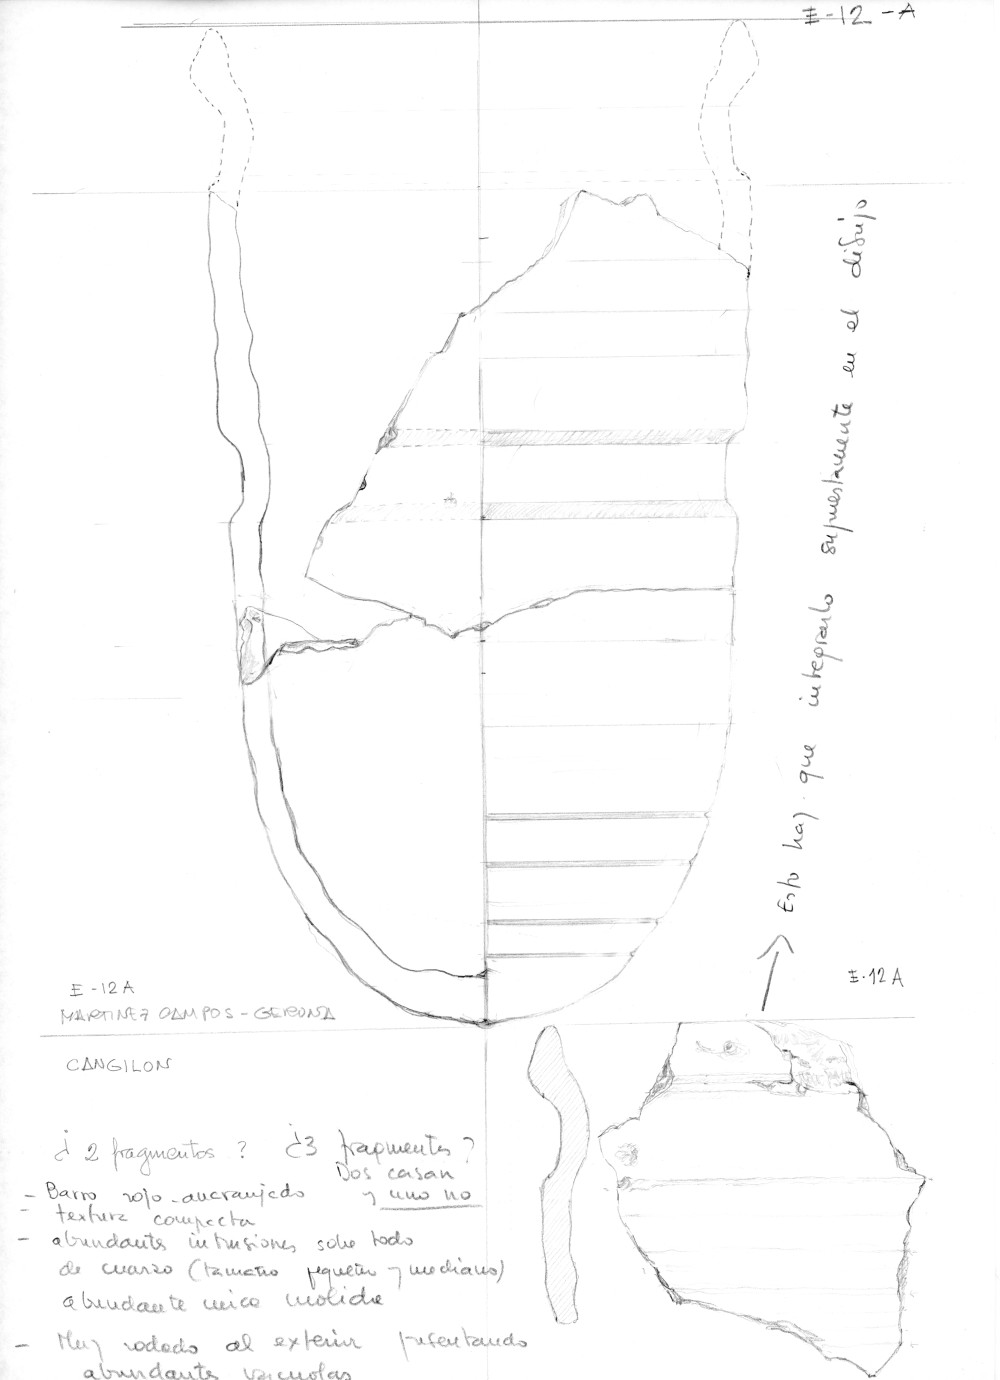 E-12-A
Esto hay que integrarlo supuestamente en el dibujo
E-12A
E-12A
MARTINEZ CAMPOS - GERONA
CANGILON
¿2 fragmentos? ¿3 fragmentos?
Dos casan
y uno no
- Barro rojo-anaranjado
- textura compacta
- abundantes intrusiones sobre todo
de cuarzo (tamaño pequeño y mediano)
abundante mica molida
- Muy rodado al exterior presentando
abundantes vacuolas